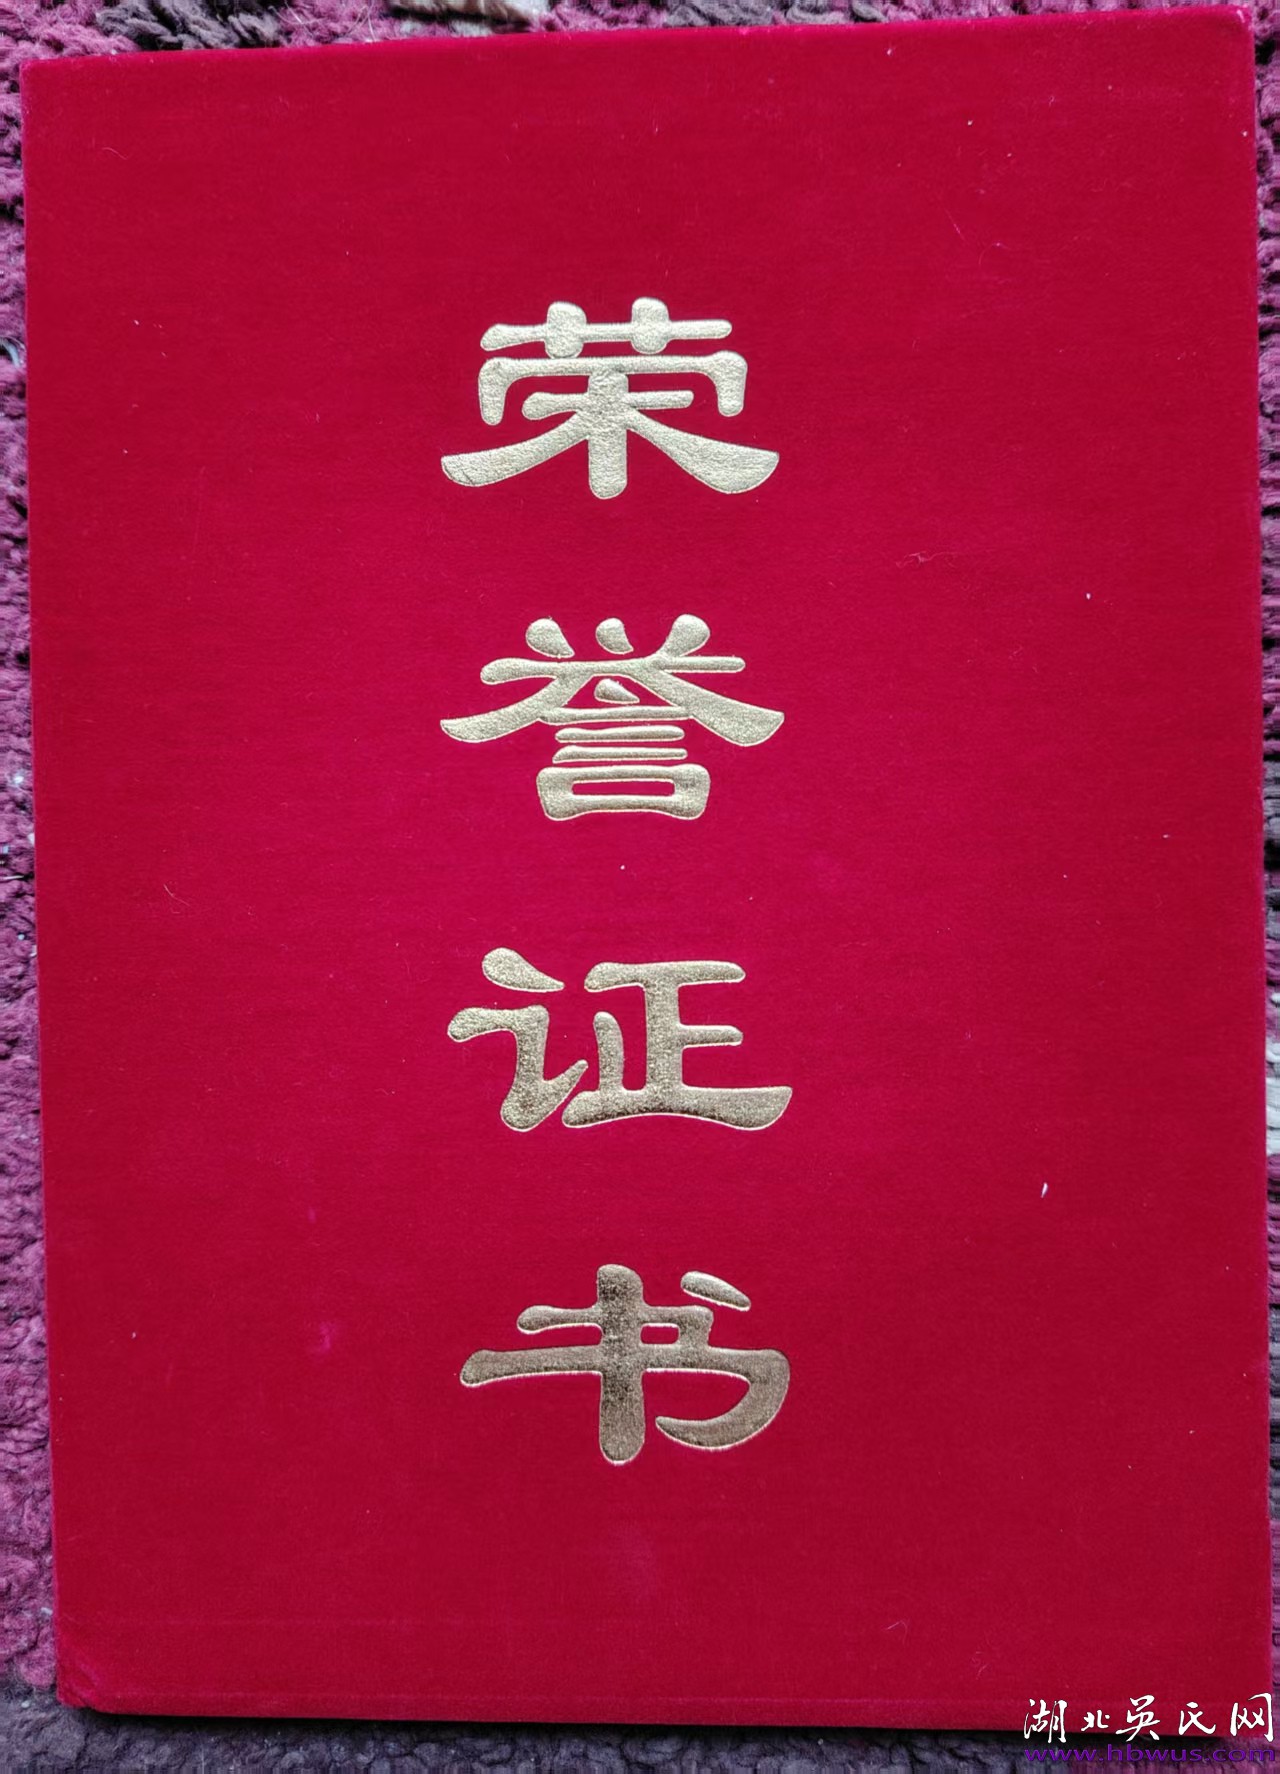 荣
誉
证
书
湖北吴氏网
www.hbwus.com